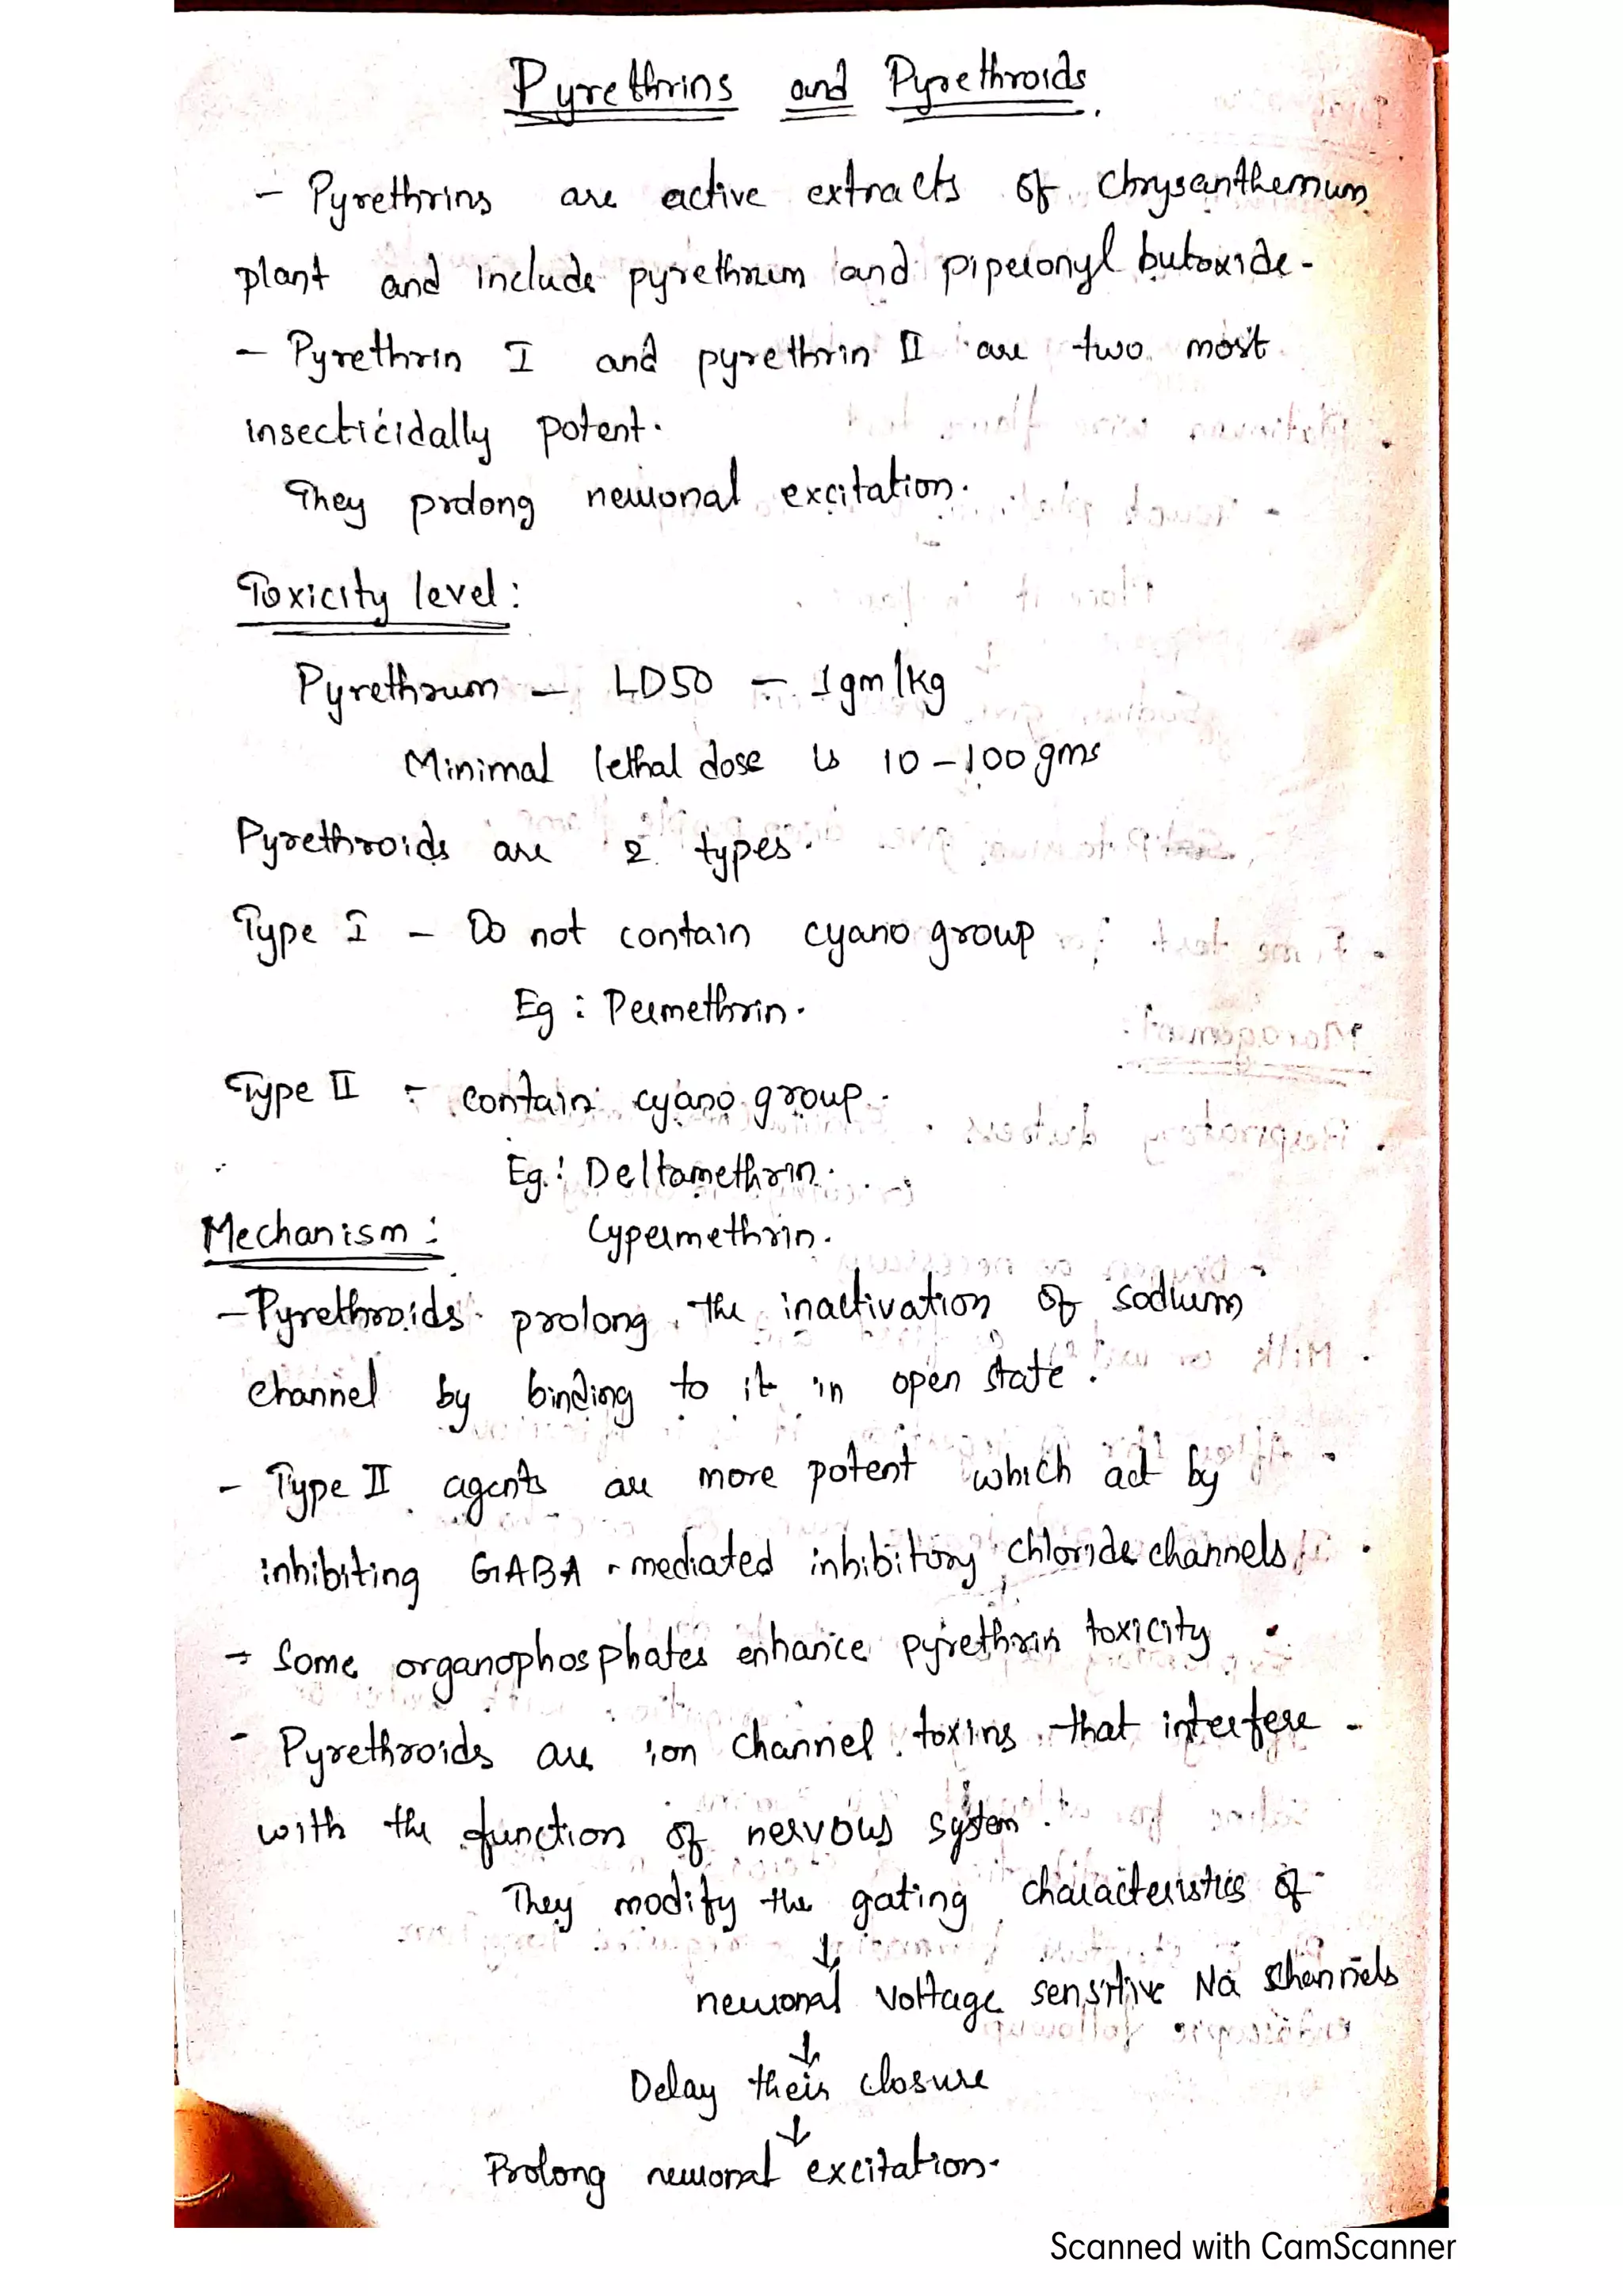 Pyrethrins and Pyrethroids.
- Pyrethrins are active extracts of chrysanthemum
plant and include pyrethrum and piperonyl butoxide -
- Pyrethrin I and pyrethrin II are two most
insecticidally potent.
They prolong neuronal excitation.
Toxicity level :
Pyrethrum - LD50 - 1gm/kg
Minimal lethal dose is 10-100gms
Pyrethroids are 2 types.
Type I - Do not contain cyano group
Eg : Permethrin.
Type II - contain cyano group.
Eg : Deltamethrin.
Mechanism : Cypermethrin.
- Pyrethroids prolong the inactivation of sodium
channel by binding to it in open state.
- Type II agents are more potent which act by
inhibiting GABA - mediated inhibitory chloride channels
- Some organophosphates enhance pyrethrin toxicity
- Pyrethroids are ion channel toxins that interfere -
with the function of nervous system.
They modify the gating characteristics of
↓
neuronal voltage sensitive Na channels
↓
Delay their closure
↓
Prolong neuronal excitation.
Scanned with CamScanner